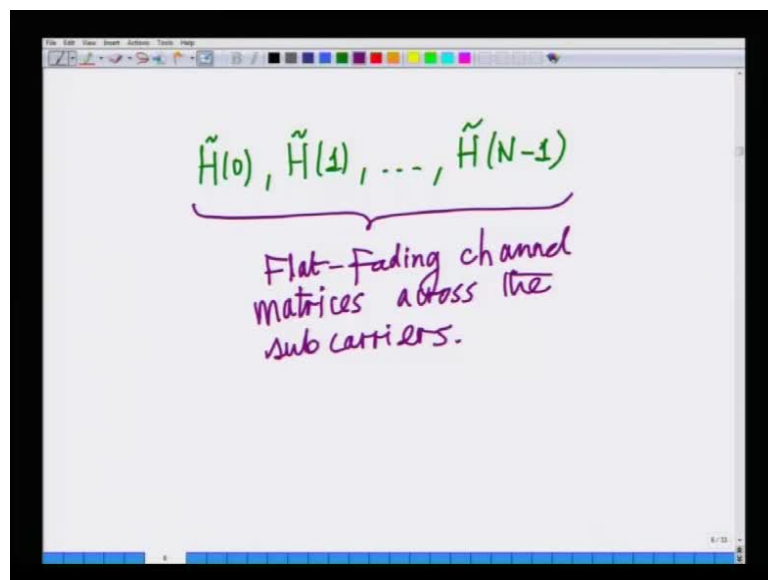 File Edit View Insert Actions Tools Help
H̃(0), H̃(1), ..., H̃(N-1)
Flat-Fading channel
matrices across the
subcarriers.